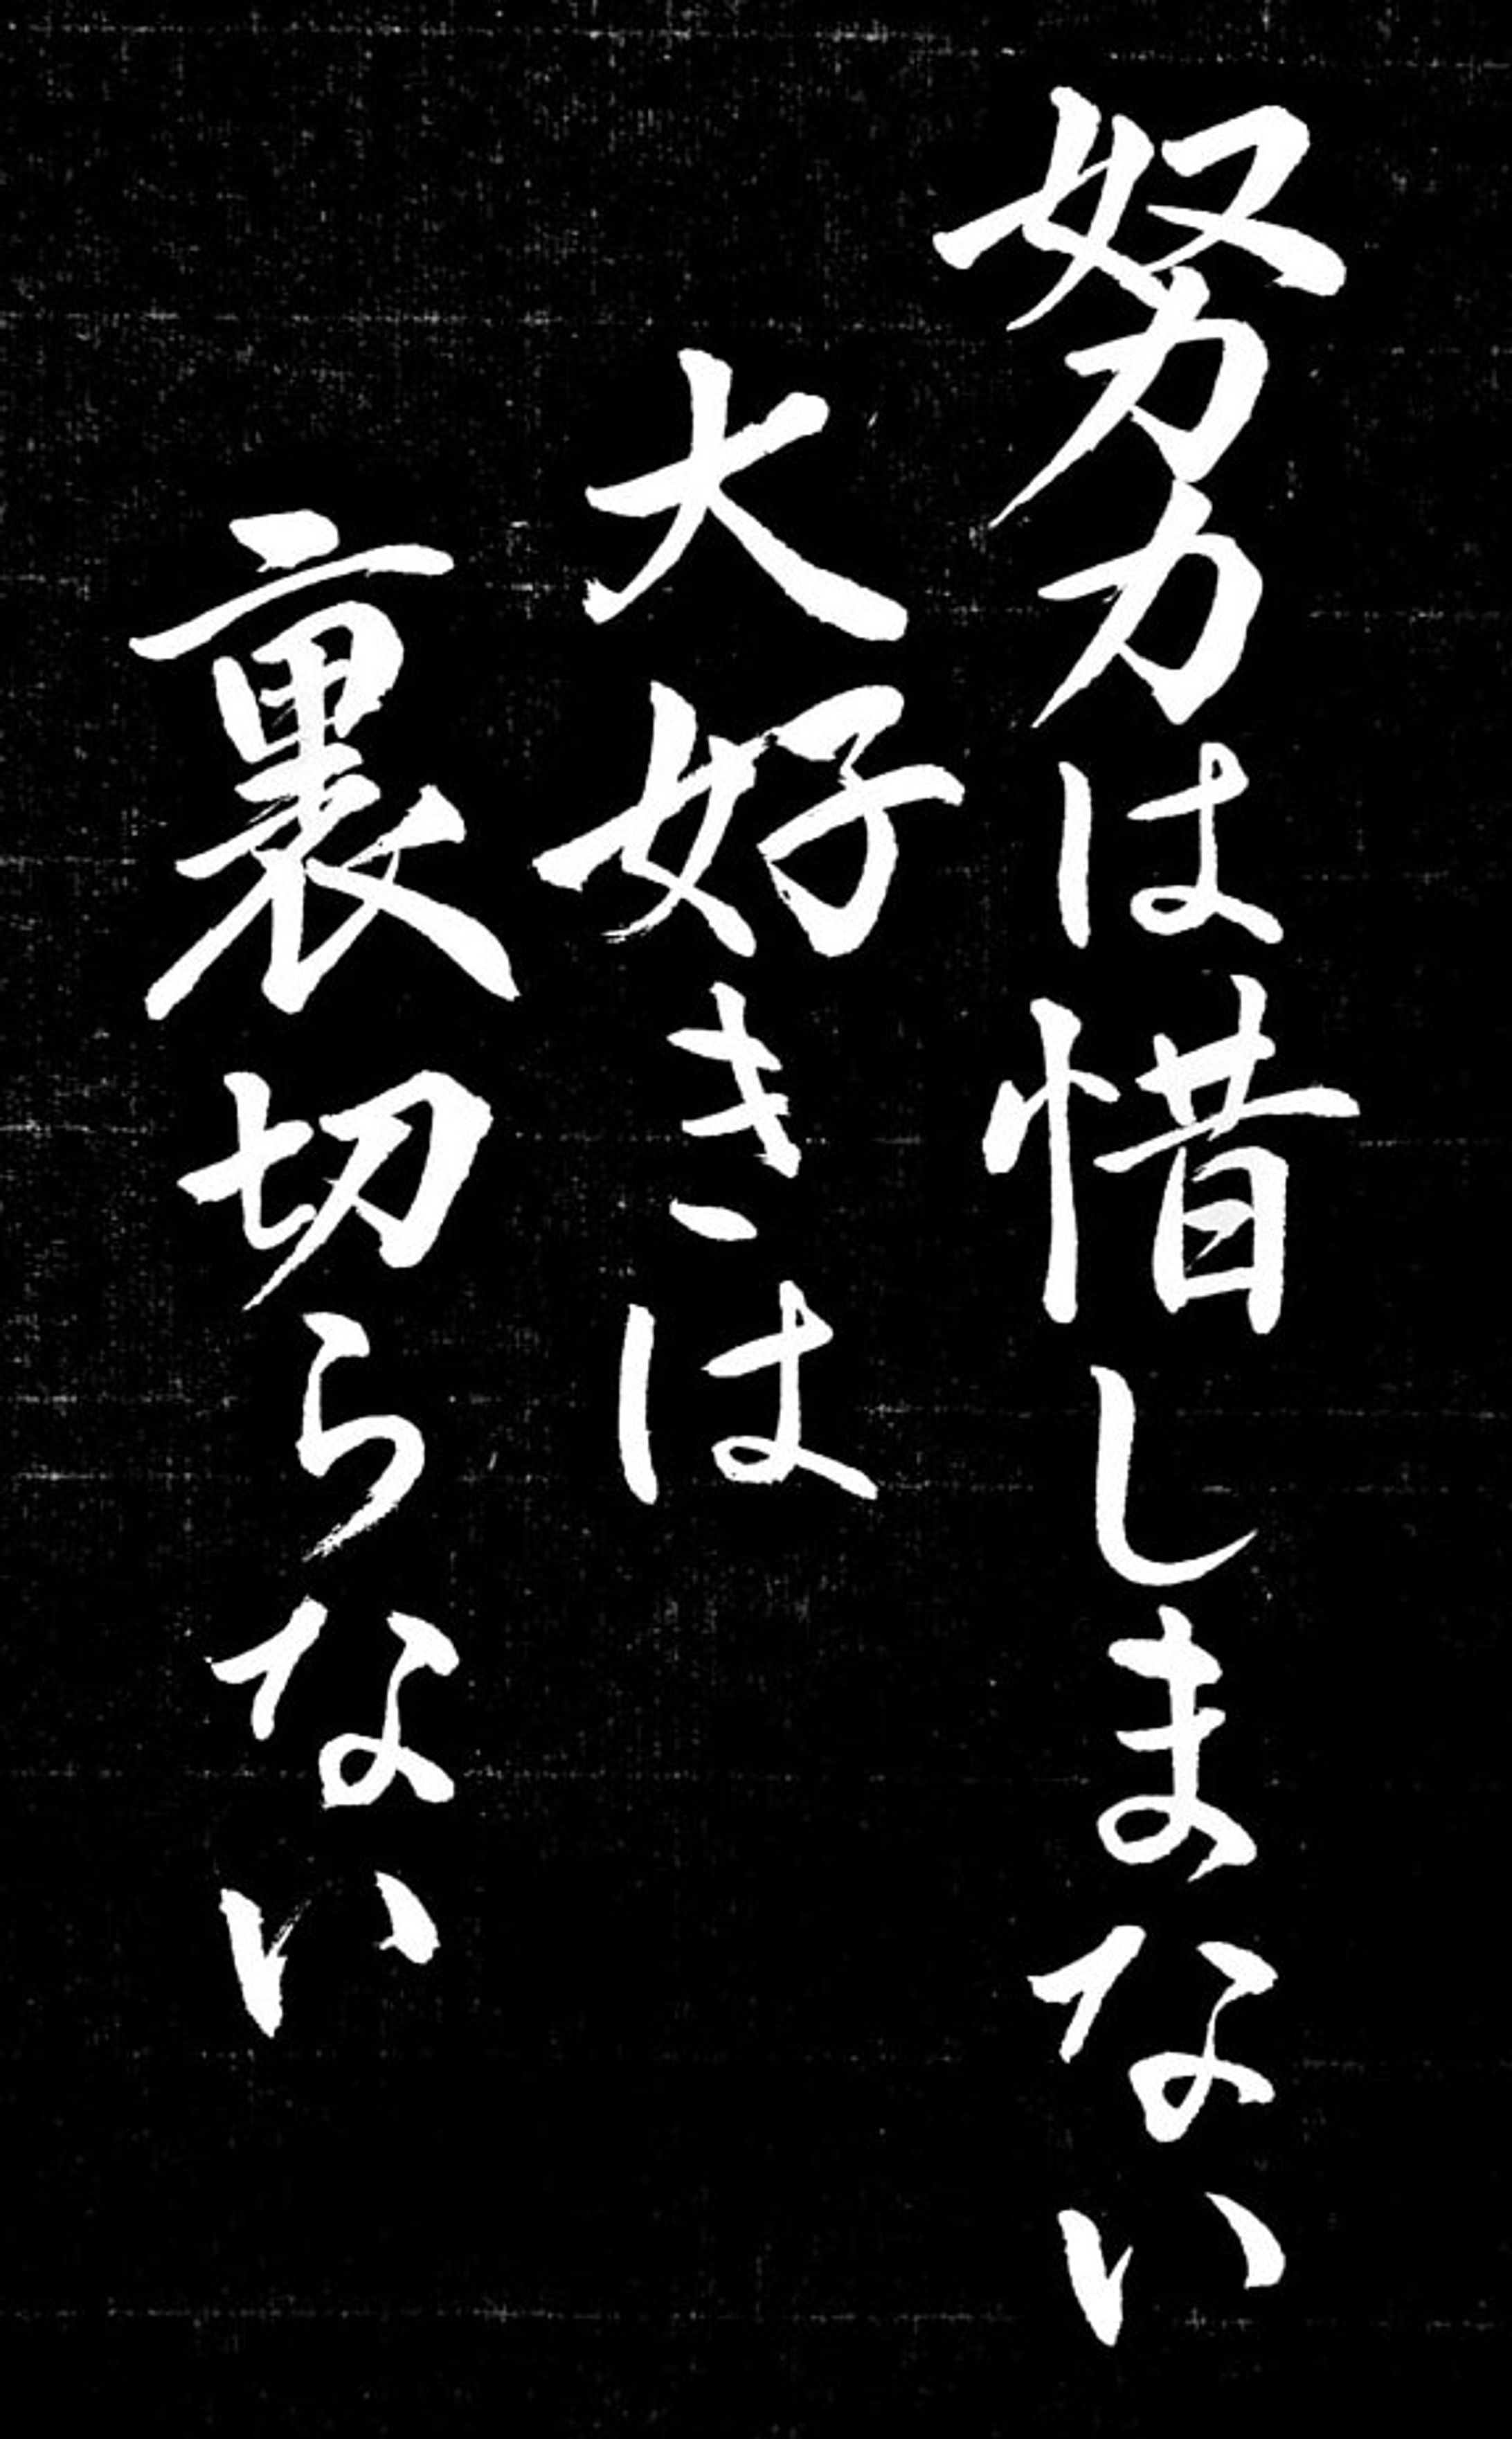 努力は惜しまない
大好きは
裏切らない